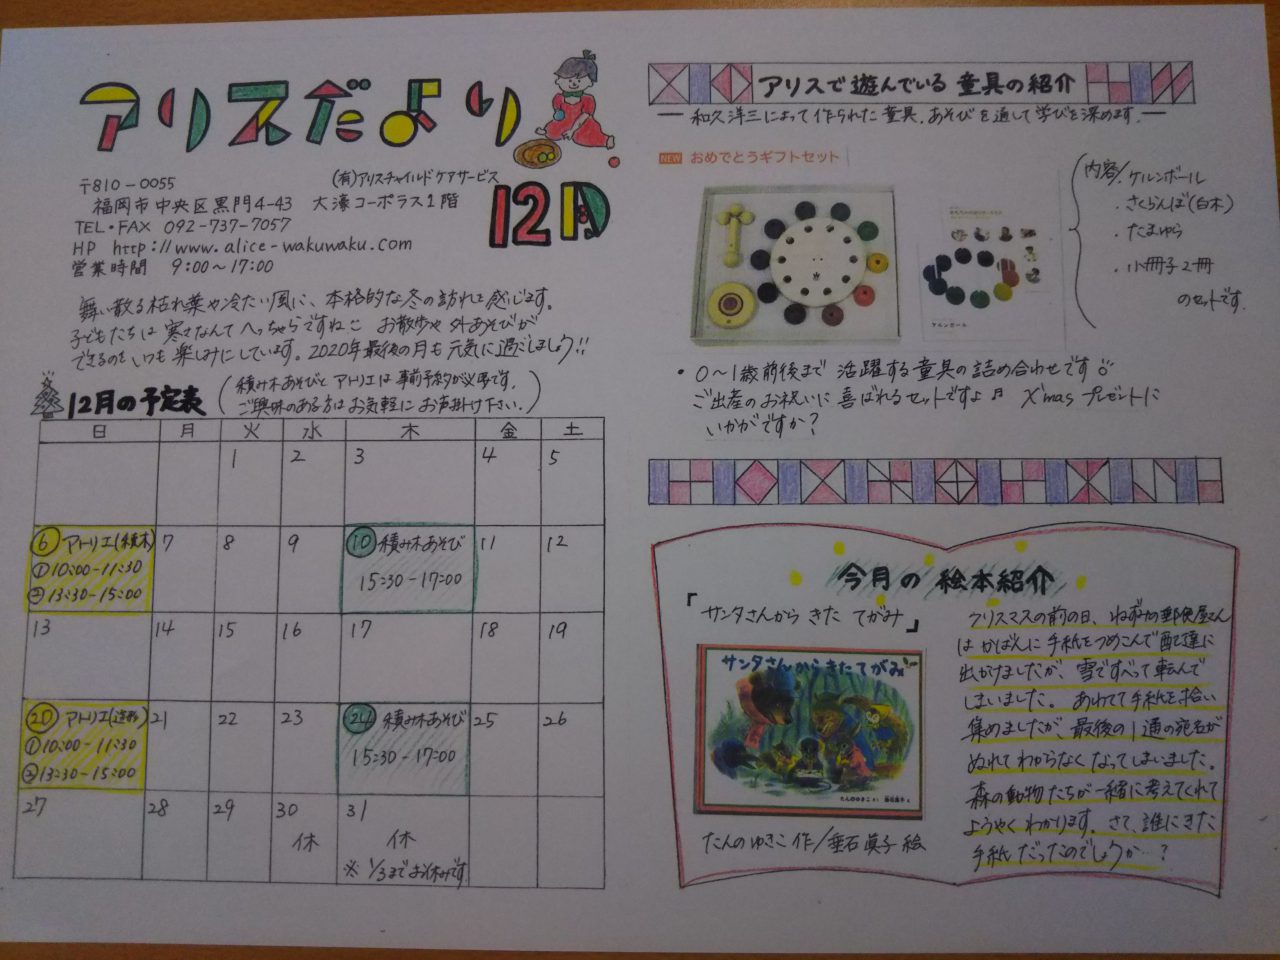 アリスだより
12月
〒810-0055
(有)アリスチャイルドケアサービス
福岡市中央区黒門4-43 大濠コーポラス1階
TEL・FAX 092-737-7057
HP http://www.alice-wakuwaku.com
営業時間 9:00〜17:00
舞い散る枯れ葉や冷たい風に、本格的な冬の訪れを感じます。
子どもたちは寒さなんてへっちゃらですね お散歩や外あそびが
できるのをいつも楽しみにしています。2020年最後の月も元気に過ごしましょう!!
12月の予定表
(積み木あそびとアトリエは事前予約が必要です。
ご興味のある方はお気軽にお声掛け下さい.)
日 月 火 水 木 金 土
1 2 3 4 5
6 アトリエ(積木)
①10:00-11:30
②13:30-15:00
7 8 9
10 積み木あそび
15:30-17:00
11 12
13 14 15 16 17 18 19
20 アトリエ(造形)
①10:00-11:30
②13:30-15:00
21 22 23
24 積み木あそび
15:30-17:00
25 26
27 28 29 30 31
休 休
※1/3までお休みです
アリスで遊んでいる童具の紹介
―和久洋三によって作られた童具.あそびを通して学びを深めます.―
NEW おめでとうギフトセット
内容/.ケルンボール
.さくらんぼ(白木)
.たまゆら
.小冊子2冊
のセットです.
ケルンボール
・0〜1歳前後まで活躍する童具の詰め合わせです
ご出産のお祝いに喜ばれるセットですよ♬ X'masプレゼントに
いかがですか?
今月の絵本紹介
「サンタさんから きた てがみ」
サンタさんからきたてがみ
たんのゆきこ さく 垂石眞子 え
たんのゆきこ 作/垂石眞子 絵
クリスマスの前の日、ねずみの郵便屋さん
はかばんに手紙をつめこんで配達に
出かけましたが、雪ですべって転んで
しまいました。あわてて手紙を拾い
集めましたが、最後の1通の宛名が
ぬれてわからなくなってしまいました。
森の動物たちが一緒に考えてくれて
ようやくわかります。さて、誰にきた
手紙だったのでしょうか…?